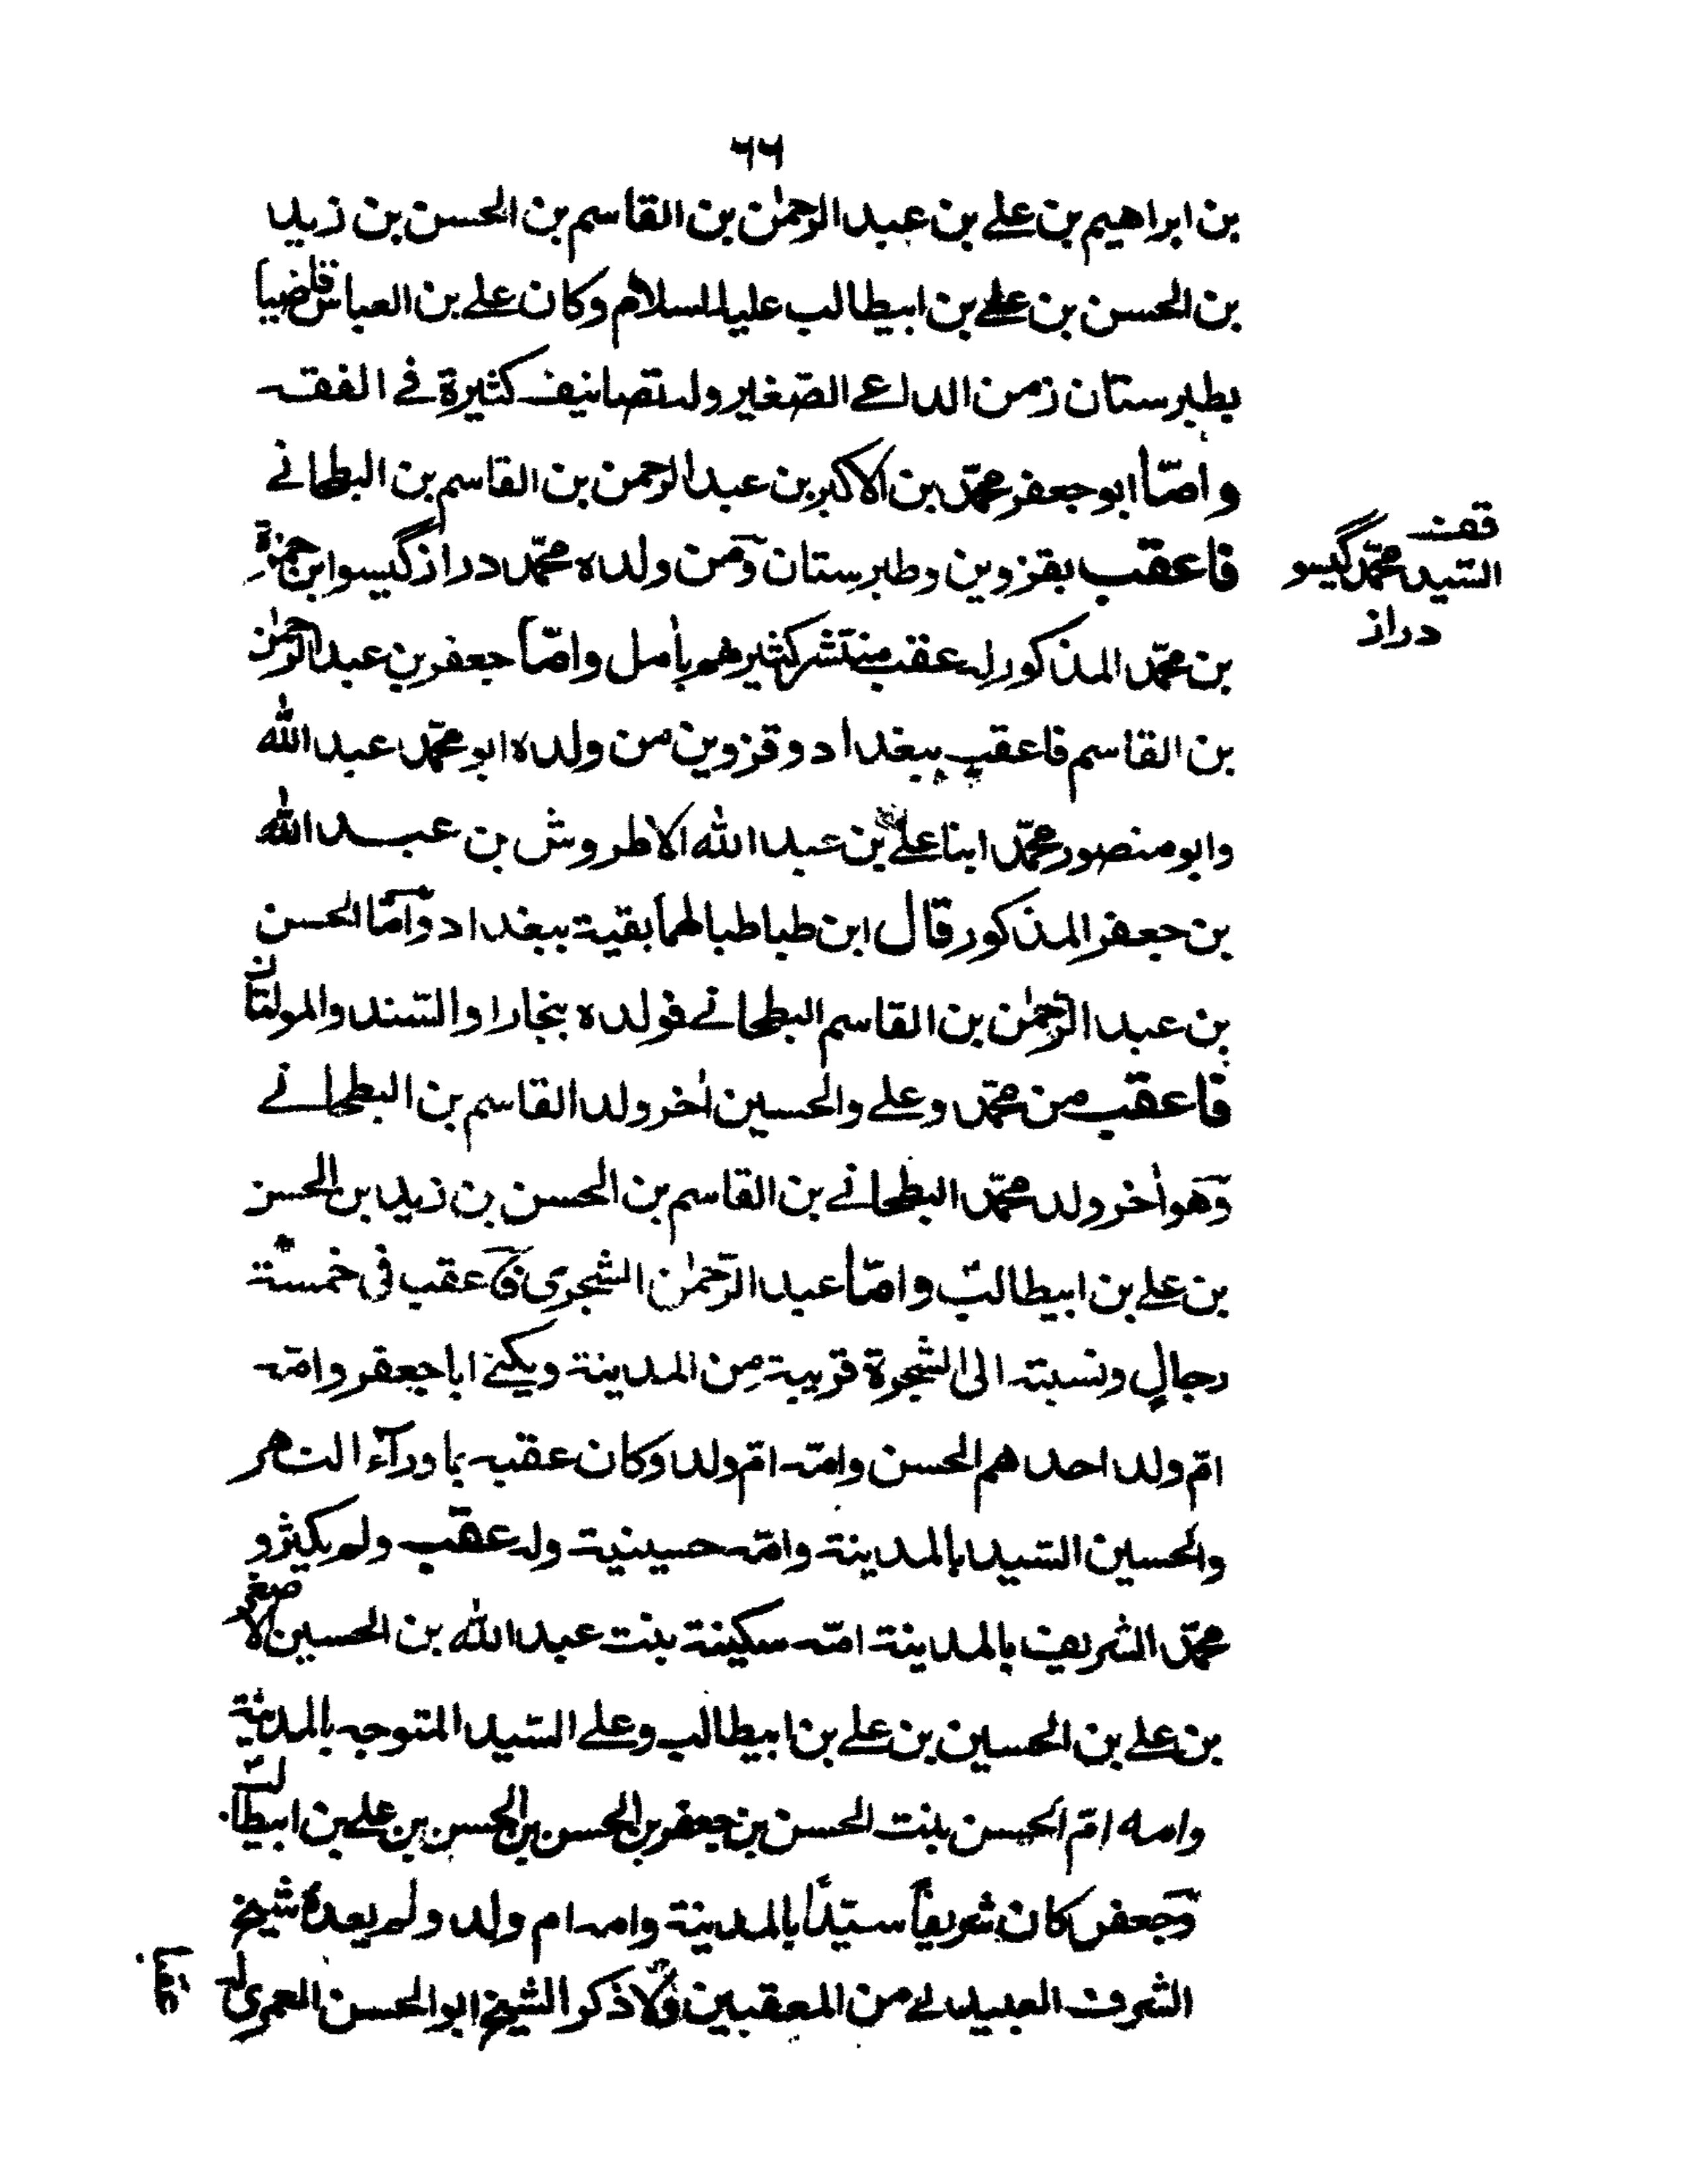 ٦٦
بن ابراهيم بن علے بن عبد الرحمٰن بن القاسم بن الحسن بن زيد
بن الحسن بن علے بن ابيطالب عليه السلام وكان علے بن العباس قاضيا
بطبرستان زمن الداعے الصّغير وله تصانيف كثيرة فے الفقه
وامّا ابو جعفر محمّد بن الاكبر بن عبد الرحمن بن القاسم بن البطحانے
فاعقب بقزوين وطبرستان ومن ولده محمّد دراز گيسو ابن حمزة
قصة
السّيد محمّد گيسو
دراز
بن محمّد المذكور له عقب منتشر كثير هم بأمل وامّا جعفر بن عبد الرحمٰن
بن القاسم فاعقب ببغداد وقزوين من ولده ابو محمّد عبد الله
وابو منصور محمّد ابنا علے بن عبد الله الاطروش بن عبد الله
بن جعفر المذكور قال ابن طباطبا لهما بقية ببغداد وامّا الحسن
بن عبد الرّحمٰن بن القاسم البطحانے فولده بنجارا والسّند والمولتان
فاعقب من محمّد وعلے والحسين اٰخر ولد القاسم بن البطحانے
وهو اٰخر ولد محمّد البطحانے بن القاسم بن الحسن بن زيد بن الحسن
بن علے بن ابيطالب وامّا عبد الرّحمٰن الشجرى فاعقب فى خمسة
رجالٍ ونسبته الى الشجرة قريبة من المدينة ويكنے ابا جعفر وامّه
امّ ولد احدهم الحسن وامّه امّ ولد وكان عقبه بما وراء النهر
والحسين السّيد بالمدينة وامّه حسينية وله عقب ولم يكثر و
محمّد الشريف بالمدينة امّه سكينة بنت عبد الله بن الحسين الاصغر
بن علے بن الحسين بن علے بن ابيطالب وعلے السّيد المتوجه بالمدينة
وامه امّ الحسن بنت الحسن بن جعفر بن الحسن بن الحسن بن علے بن ابيطالب
وجعفر كان شريفاً سيّداً بالمدينة وامه ام ولد ولم يعده شيخ
الشرف العبيدلے من المعقبين ولا ذكر الشيخ ابو الحسن العمرى له